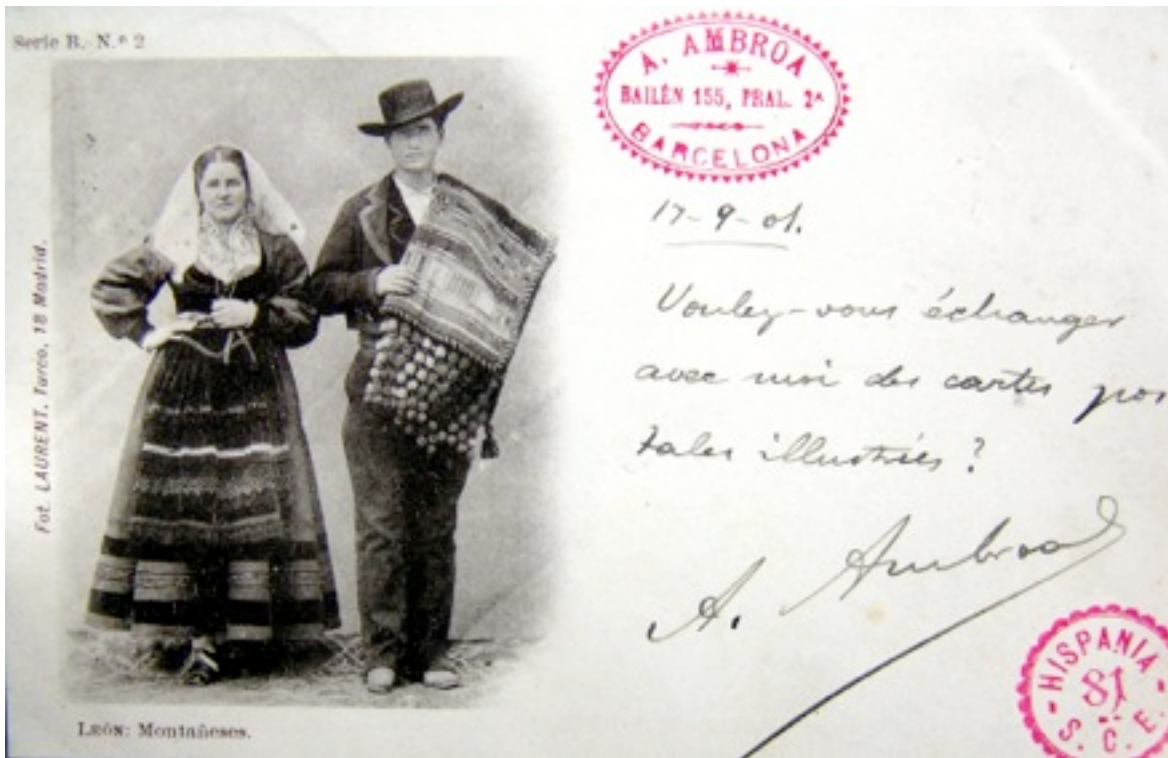 Serie B. N.º 2
Fot. LAURENT, Turco, 18 Madrid.
LEÓN: Montañeses.
A. AMBROA
BAILÉN 155, PRAL. 2ª
BARCELONA
17-9-01.
Voulez-vous échanger
avec moi des cartes pos
tales illustrées ?
A. Ambroa
HISPANIA
81
S. C. E.